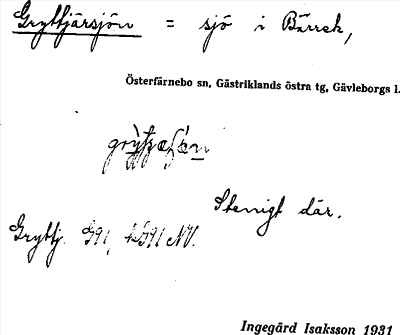 Gryttjärsjön = sjö i Bärrek,
Österfärnebo sn, Gästriklands östra tg, Gävleborgs l.
Stenigt där.
Gryttj. 591, NV.
Ingegärd Isaksson 1931